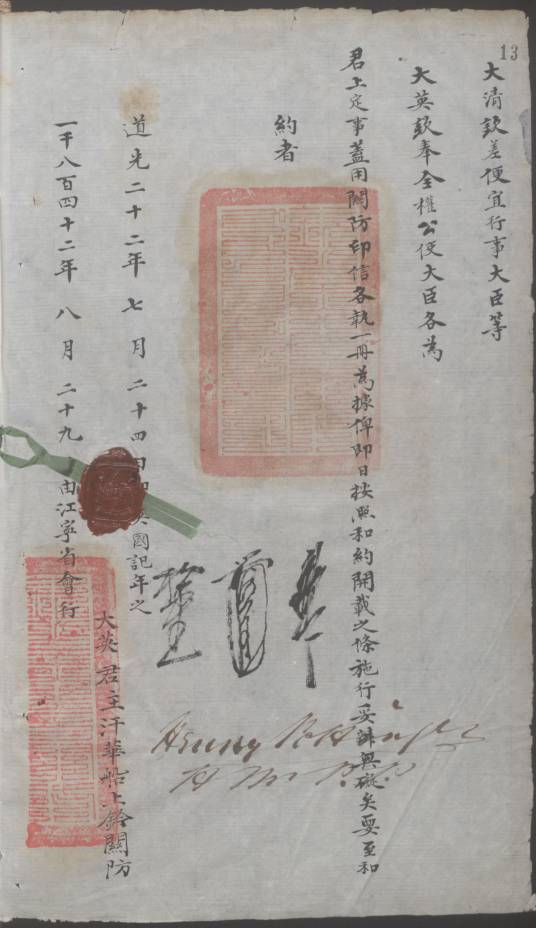 13
大清欽差便宜行事大臣等
大英欽奉全權公使大臣各為
君上定事蓋用關防印信各執一冊為據俾即日按照和約開載之條施行妥辦無礙矣要至和
約者
道光二十二年七月二十四日即英國記年之
一千八百四十二年八月二十九 由江寧省會行
大英君主汗華船上鈐關防
Henry Pottinger
H M P.P.